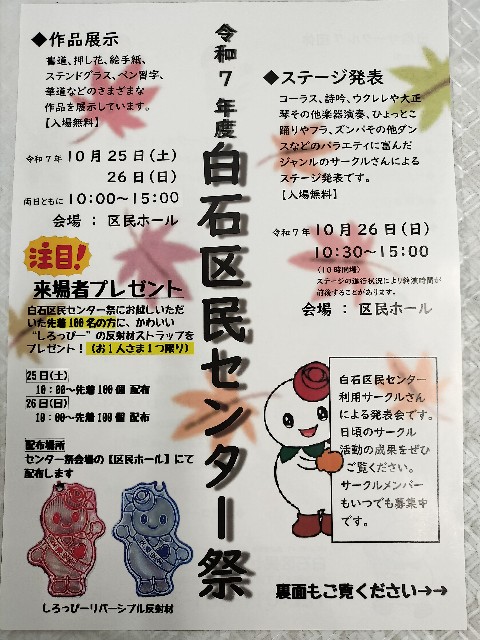 令和7年度
白石区民センター祭
◆作品展示
書道、押し花、絵手紙、
ステンドグラス、ペン習字、
華道などのさまざまな
作品を展示しています。
【入場無料】
令和7年 10月25日(土)
26日(日)
両日ともに 10:00~15:00
会場 : 区民ホール
注目!
来場者プレゼント
白石区民センター祭にお越しいただ
いた先着100名の方に、かわいい
“しろっぴー”の反射材ストラップを
プレゼント!(お1人さま1つ限り)
25日(土)
10:00~先着100個 配布
26日(日)
10:00~先着100個 配布
配布場所
センター祭会場の【区民ホール】にて
配布します
しろっぴーリバーシブル反射材
◆ステージ発表
コーラス、詩吟、ウクレレや大正
琴その他楽器演奏、ひょっとこ
踊りやフラ、ズンバその他ダン
スなどのバラエティに富んだ
ジャンルのサークルさんによる
ステージ発表です。
【入場無料】
令和7年 10月26日(日)
10:30~15:00
(10時開場)
ステージの進行状況により終演時間が
前後することがあります。
会場 : 区民ホール
白石区民センター
利用サークルさん
による発表会です。
日頃のサークル
活動の成果をぜひ
ご覧ください。
サークルメンバー
もいつでも募集中
です。
裏面もご覧ください→→